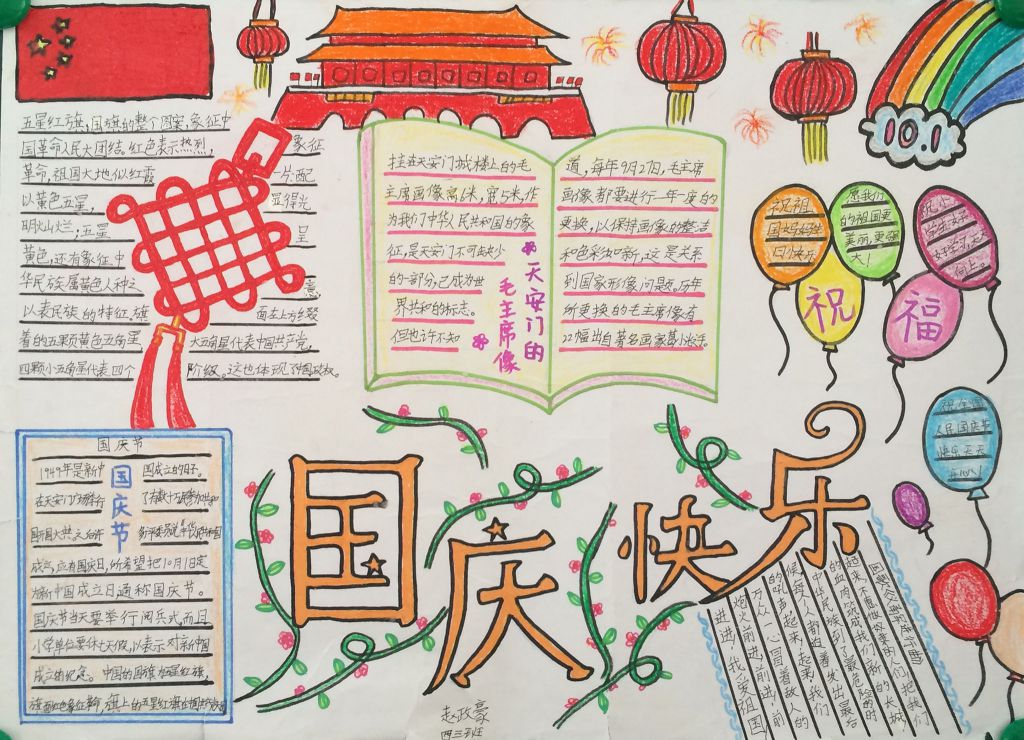 五星红旗,国旗的整个图案,象征中
国革命人民大团结。红色表示热烈,象征
革命,祖国大地似红霞一片,配
以黄色五星,显得光
明灿烂;五星呈
黄色,还有象征中
华民族属黄色人种之意,
以表民族的特征,旗面左上方缀
着的五颗黄色五角星,大五角星代表中国共产党,
四颗小五角星代表四个阶级。这也体现了中国政权。
挂在天安门城楼上的毛
主席画像高6米,宽5米,作
为我们中华人民共和国的象
征,是天安门不可缺少
的一部分,已成为世
界共和的标志。
但也许不知
天安门的
毛主席像
道,每年9月27日,毛主席
画像都要进行一年一度的
更换,以保持画像的整洁
和色彩如新,这是关系
到国家形像问题。历年
所更换的毛主席像有
22幅出自著名画家葛小光手。
10.1
祝祖
国妈妈
愿我们
的祖国更
美丽,更强
大!
好学习,天天
向上。
祝
福
人民国庆节
快乐天天
国庆节
国庆节
1949年是新中国成立的日子。
在天安门广场
成立,应有国庆日,所希望把10月1日定
为新中国成立日通称国庆节。
国庆节当天要举行阅兵式,而且
小学单位要休七天假,以表示对新中国
成立的纪念。中国的国旗是五星红旗,
旗面红色象征革命,旗上的五星红旗
国庆快乐
起来,不愿做奴隶的人们,把我们
的血肉,筑成我们新的长城,
中华民族到了最危险的时
候,每个人都被迫着发出最后
的吼声,起来,起来,我们
万众一心,冒着敌人的
炮火,前进,前进,前
进,进,我爱祖国
赵政豪
四三班